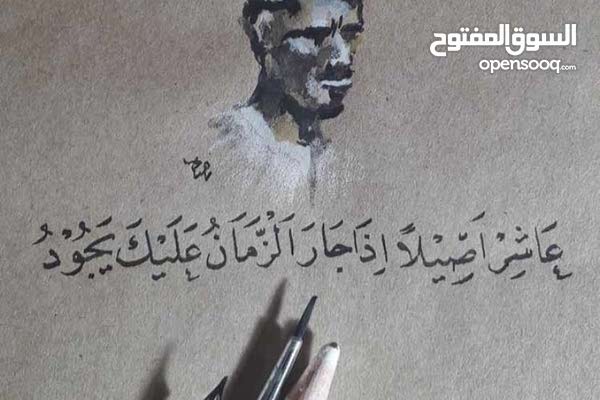 السوق المفتوح
opensooq.com
عَاشِرْ اَصِّيْلاً اِذَا جَارَ اَلْزَّمَانُ عَلَيْكَ يَجُوْدُ